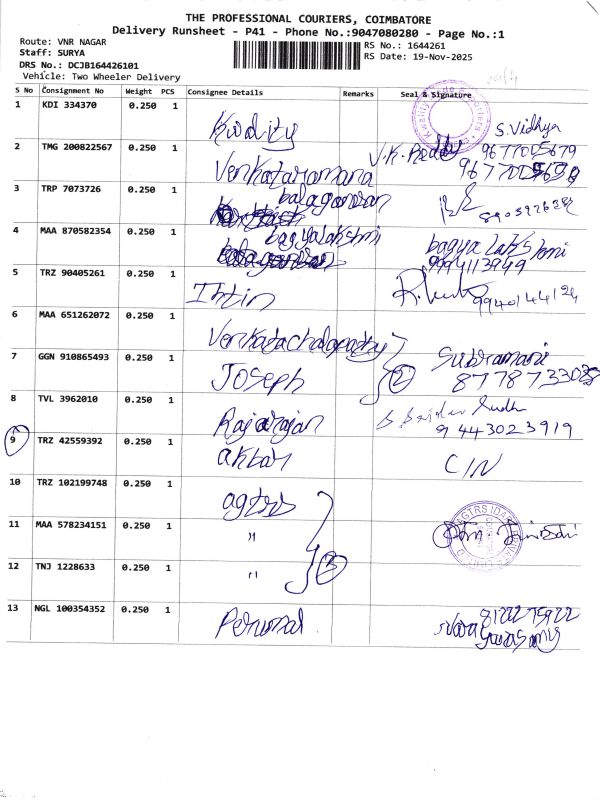 THE PROFESSIONAL COURIERS, COIMBATORE
Delivery Runsheet - P41 - Phone No.:9047080280 - Page No.:1
Route: VNR NAGAR
Staff: SURYA
DRS No.: DCJB164426101
Vehicle: Two Wheeler Delivery
RS No.: 1644261
RS Date: 19-Nov-2025
S No Consignment No Weight PCS Consignee Details Remarks Seal & Signature
1 KDI 334370 0.250 1 Kwality S.Vidhya
2 TMG 200822567 0.250 1 Venkataramana V.K. Reddy 9677005679
3 TRP 7073726 0.250 1 balagandran
4 MAA 870582354 0.250 1 bagyalakshmi bagya lakshmi
9994113949
5 TRZ 90405261 0.250 1 9940144124
6 MAA 651262072 0.250 1 Venkatachalapathy
7 GGN 910865493 0.250 1 Joseph 2 Subramani
8 TVL 3962010 0.250 1 Rajarajan 9443023919
9 TRZ 42559392 0.250 1 akbar C/N
10 TRZ 102199748 0.250 1 agtrs
11 MAA 578234151 0.250 1 "
12 TNJ 1228633 0.250 1 " 3
13 NGL 100354352 0.250 1 Perumal